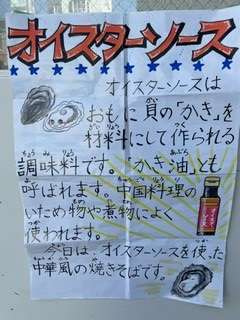 オイスターソース
オイスターソースは
おもに貝の「かき」を
材料にして作られる
調味料です。「かき油」とも
呼ばれます。中国料理の
いため物や煮物によく
使われます。
今日は、オイスターソースを使った
中華風の焼きそばです。